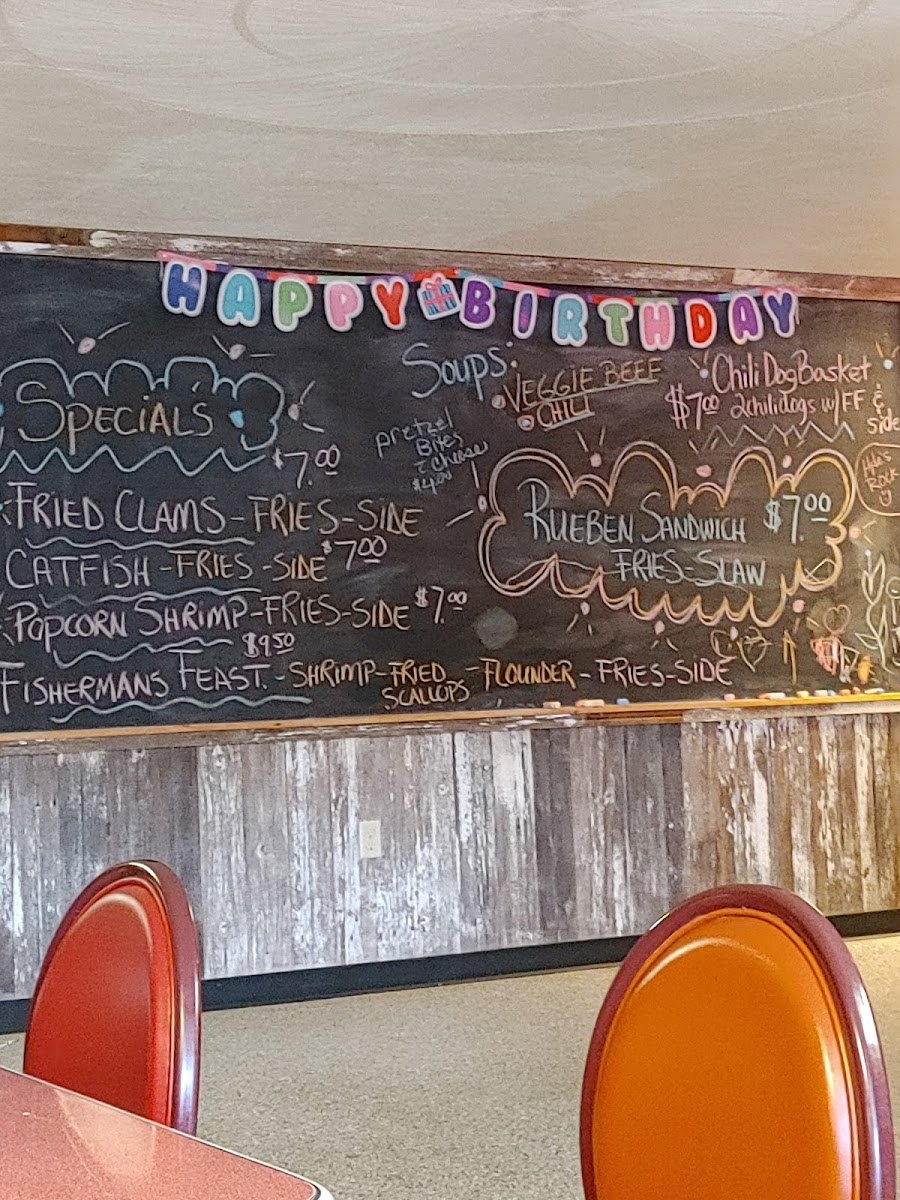 HAPPY BIRTHDAY
SPECIAL'S
$7.00
FRIED CLAMS - FRIES - SIDE
CATFISH - FRIES - SIDE $7.00
POPCORN SHRIMP - FRIES - SIDE $7.00
$9.50
FISHERMANS FEAST. - SHRIMP - FRIED - FLOUNDER - FRIES - SIDE
SCALLOPS
SOUPS:
VEGGIE BEEF
CHILI
pretzel
Bites
& cheese
$4.00
Chili Dog Basket
$7.00 2 chili dogs w/ FF &
side
RUEBEN SANDWICH $7.00
FRIES - SLAW
ROCK